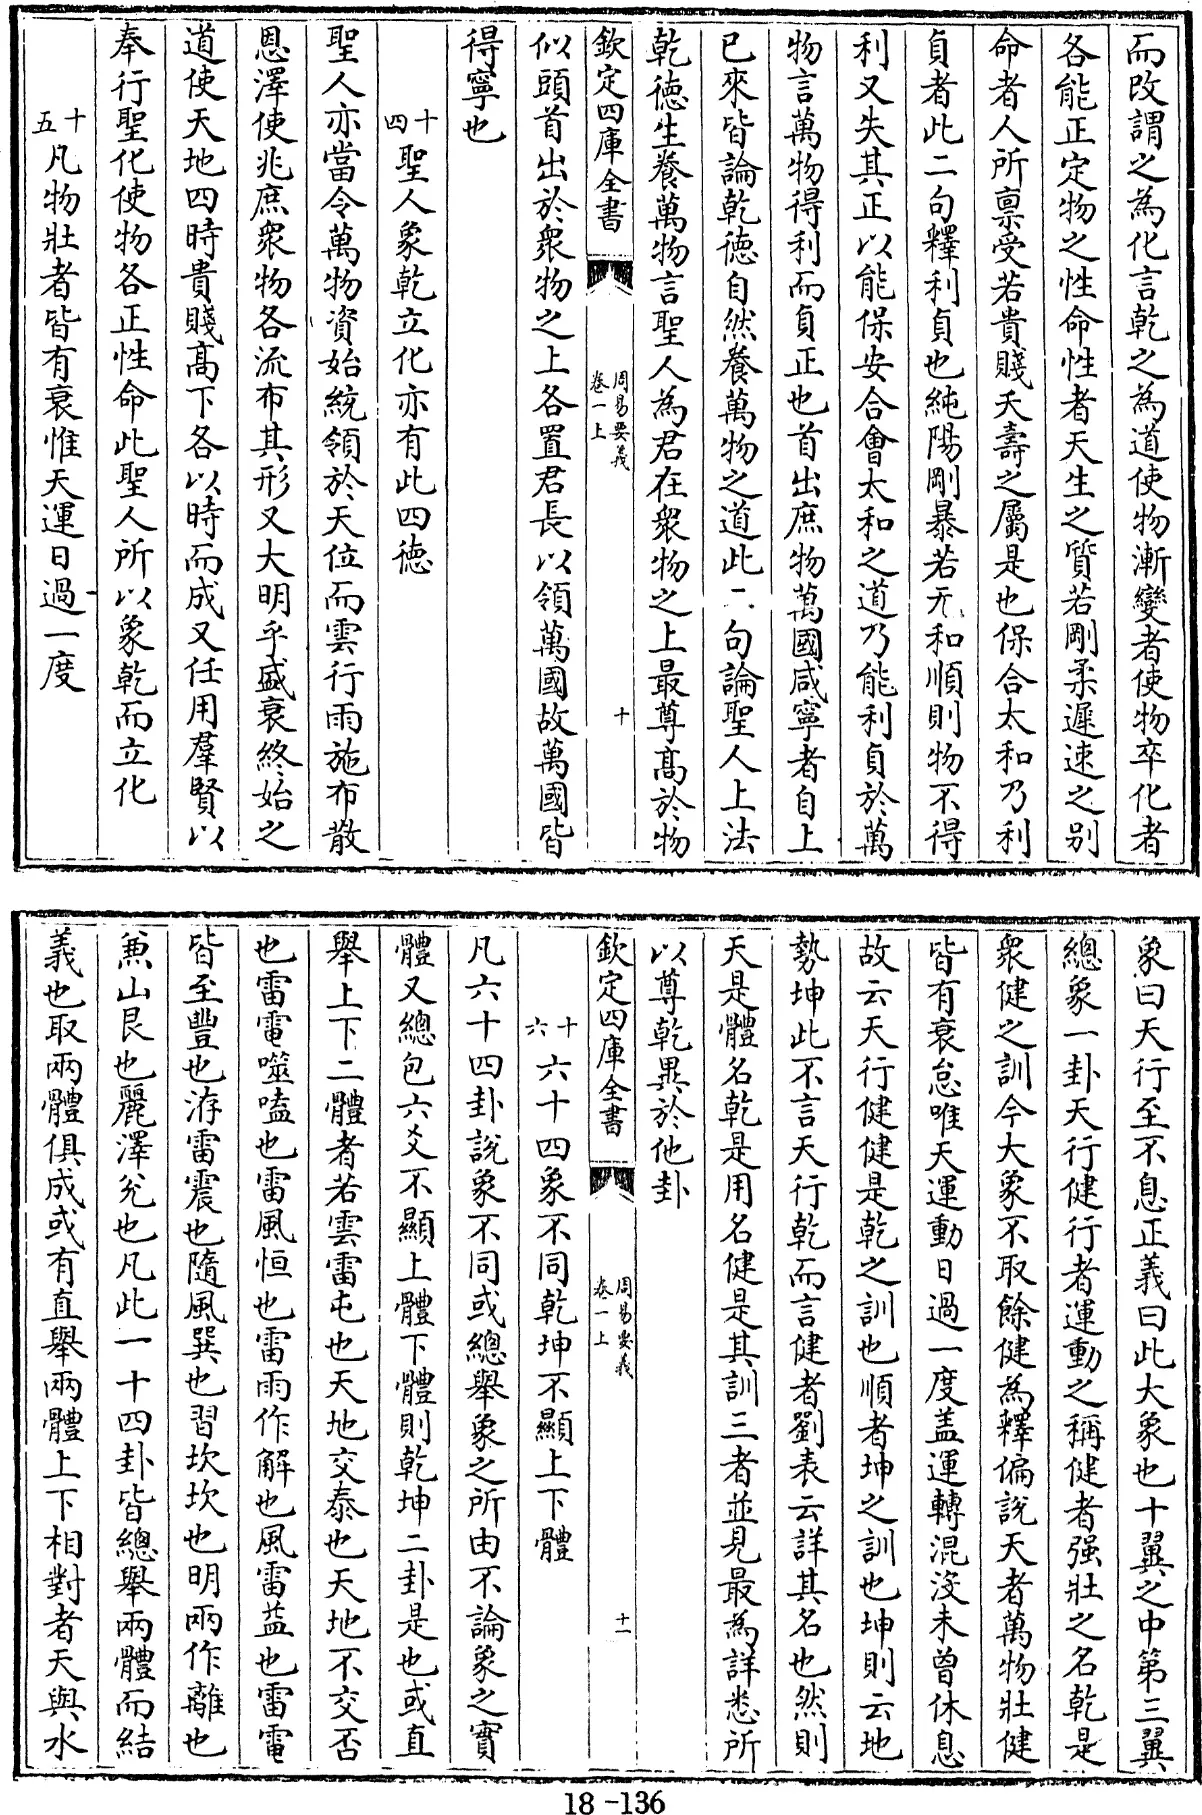 而改謂之為化言乾之為道使物漸變者使物卒化者
各能正定物之性命性者天生之質若剛柔遲速之别
命者人所禀受若貴賤夭壽之屬是也保合太和乃利
貞者此二句釋利貞也純陽剛暴若无和順則物不得
利又失其正以能保安合會太和之道乃能利貞於萬
物言萬物得利而貞正也首出庶物萬國咸寧者自上
已來皆論乾徳自然養萬物之道此二句論聖人上法
乾徳生養萬物言聖人為君在衆物之上最尊髙於物
欽定四庫全書
周易要義
卷一上
十
似頭首出於衆物之上各置君長以領萬國故萬國皆
得寧也
十四聖人象乾立化亦有此四徳
聖人亦當令萬物資始統領於天位而雲行雨施布散
恩澤使兆庶衆物各流布其形又大明乎盛衰終始之
道使天地四時貴賤髙下各以時而成又任用羣賢以
奉行聖化使物各正性命此聖人所以象乾而立化
十五凡物壯者皆有衰惟天運日過一度
象曰天行至不息正義曰此大象也十翼之中第三翼
總象一卦天行健行者運動之稱健者强壯之名乾是
衆健之訓今大象不取餘健為釋偏說天者萬物壯健
皆有衰怠唯天運動日過一度盖運轉混没未曾休息
故云天行健健是乾之訓也順者坤之訓也坤則云地
勢坤此不言天行乾而言健者劉表云詳其名也然則
天是體名乾是用名健是其訓三者並見最為詳悉所
以尊乾異於他卦
欽定四庫全書
周易要義
卷一上
十一
十六六十四象不同乾坤不顯上下體
凡六十四卦說象不同或總舉象之所由不論象之實
體又總包六爻不顯上體下體則乾坤二卦是也或直
舉上下二體者若雲雷屯也天地交泰也天地不交否
也雷電噬嗑也雷風恒也雷雨作解也風雷益也雷電
皆至豐也洊雷震也隨風巽也習坎坎也明兩作離也
兼山艮也麗澤兊也凡此一十四卦皆總舉兩體而結
義也取兩體俱成或有直舉兩體上下相對者天與水
18-136